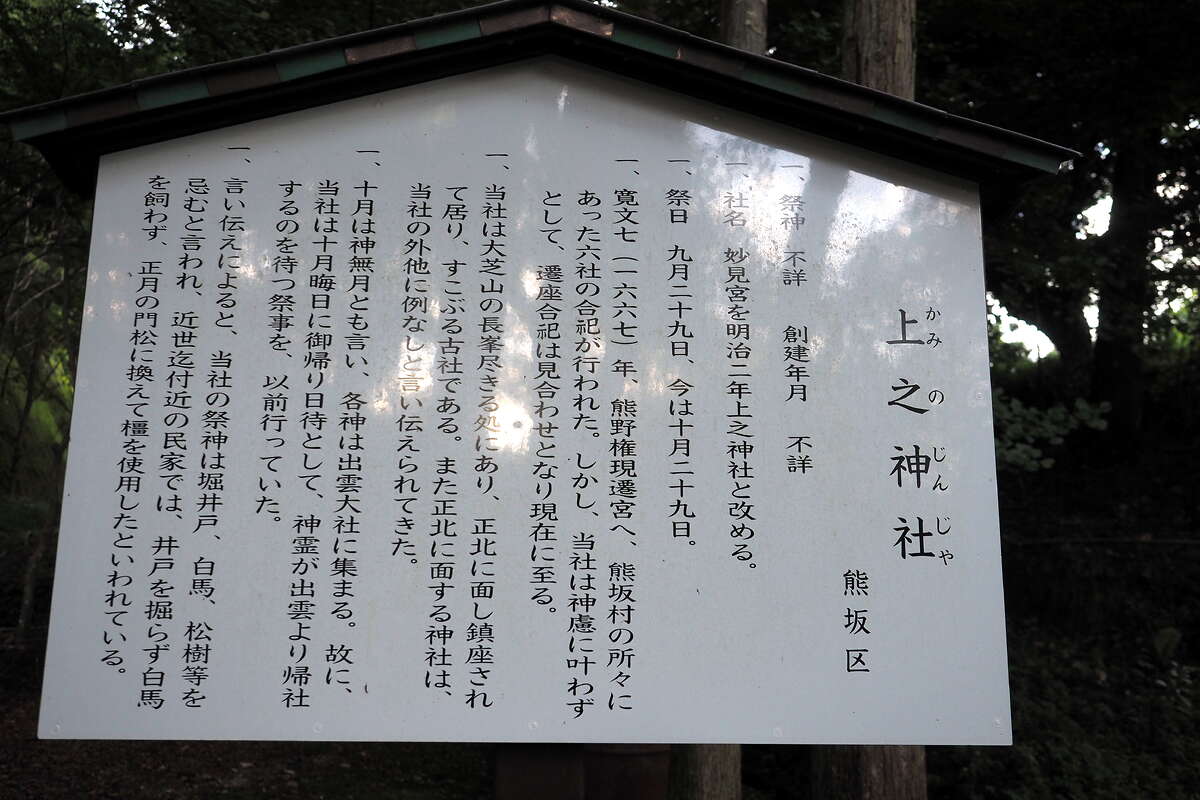 上之神社
かみのじんじゃ
熊坂区
一、祭神 不詳 創建年月 不詳
一、社名 妙見宮を明治二年上之神社と改める。
一、祭日 九月二十九日、今は十月二十九日。
一、寛文七（一六六七）年、熊野権現遷宮へ、熊坂村の所々に
あった六社の合祀が行われた。しかし、当社は神慮に叶わず
として、遷座合祀は見合わせとなり現在に至る。
一、当社は大芝山の長峯尽きる処にあり、正北に面し鎮座され
て居り、すこぶる古社である。また正北に面する神社は、
当社の外他に例なしと言い伝えられてきた。
一、十月は神無月とも言い、各神は出雲大社に集まる。故に、
当社は十月晦日に御帰り日待として、神霊が出雲より帰社
するのを待つ祭事を、以前行っていた。
一、言い伝えによると、当社の祭神は堀井戸、白馬、松樹等を
忌むと言われ、近世迄付近の民家では、井戸を掘らず白馬
を飼わず、正月の門松に換えて橿を使用したといわれている。